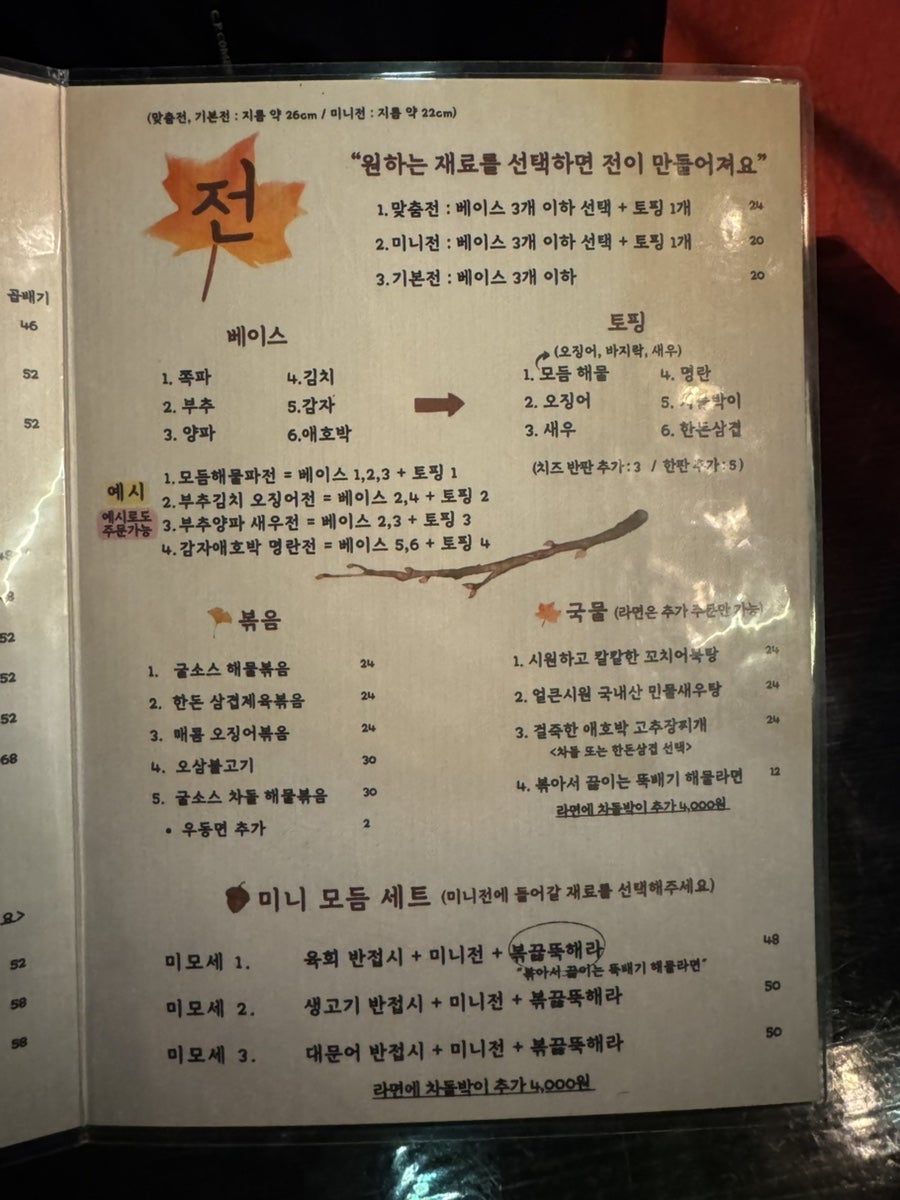 C.P.COM
(맞춤전, 기본전 : 지름 약 26cm / 미니전 : 지름 약 22cm)
전
“원하는 재료를 선택하면 전이 만들어져요”
1. 맞춤전 : 베이스 3개 이하 선택 + 토핑 1개 24
2. 미니전 : 베이스 3개 이하 선택 + 토핑 1개 20
3. 기본전 : 베이스 3개 이하 20
베이스
1. 쪽파 4. 김치
2. 부추 5. 감자
3. 양파 6. 애호박
토핑
(오징어, 바지락, 새우)
1. 모듬 해물 4. 명란
2. 오징어 5. 차돌박이
3. 새우 6. 한돈삼겹
(치즈 반판 추가 : 3 / 한판 추가 : 5)
예시
예시로도
주문가능
1. 모듬해물파전 = 베이스 1,2,3 + 토핑 1
2. 부추김치 오징어전 = 베이스 2,4 + 토핑 2
3. 부추양파 새우전 = 베이스 2,3 + 토핑 3
4. 감자애호박 명란전 = 베이스 5,6 + 토핑 4
볶음
1. 굴소스 해물볶음 24
2. 한돈 삼겹제육볶음 24
3. 매콤 오징어볶음 24
4. 오삼불고기 30
5. 굴소스 차돌 해물볶음 30
• 우동면 추가 2
국물 (라면은 추가 주문만 가능)
1. 시원하고 칼칼한 꼬치어묵탕 24
2. 얼큰시원 국내산 민물새우탕 24
3. 걸죽한 애호박 고추장찌개 24
<차돌 또는 한돈삼겹 선택>
4. 볶아서 끓이는 뚝배기 해물라면 12
라면에 차돌박이 추가 4,000원
미니 모듬 세트 (미니전에 들어갈 재료를 선택해주세요)
미모세 1. 육회 반접시 + 미니전 + 볶끓뚝해라 48
"볶아서 끓이는 뚝배기 해물라면"
미모세 2. 생고기 반접시 + 미니전 + 볶끓뚝해라 50
미모세 3. 대문어 반접시 + 미니전 + 볶끓뚝해라 50
라면에 차돌박이 추가 4,000원
곱배기
46
52
52
52
52
52
68
요>
52
58
58